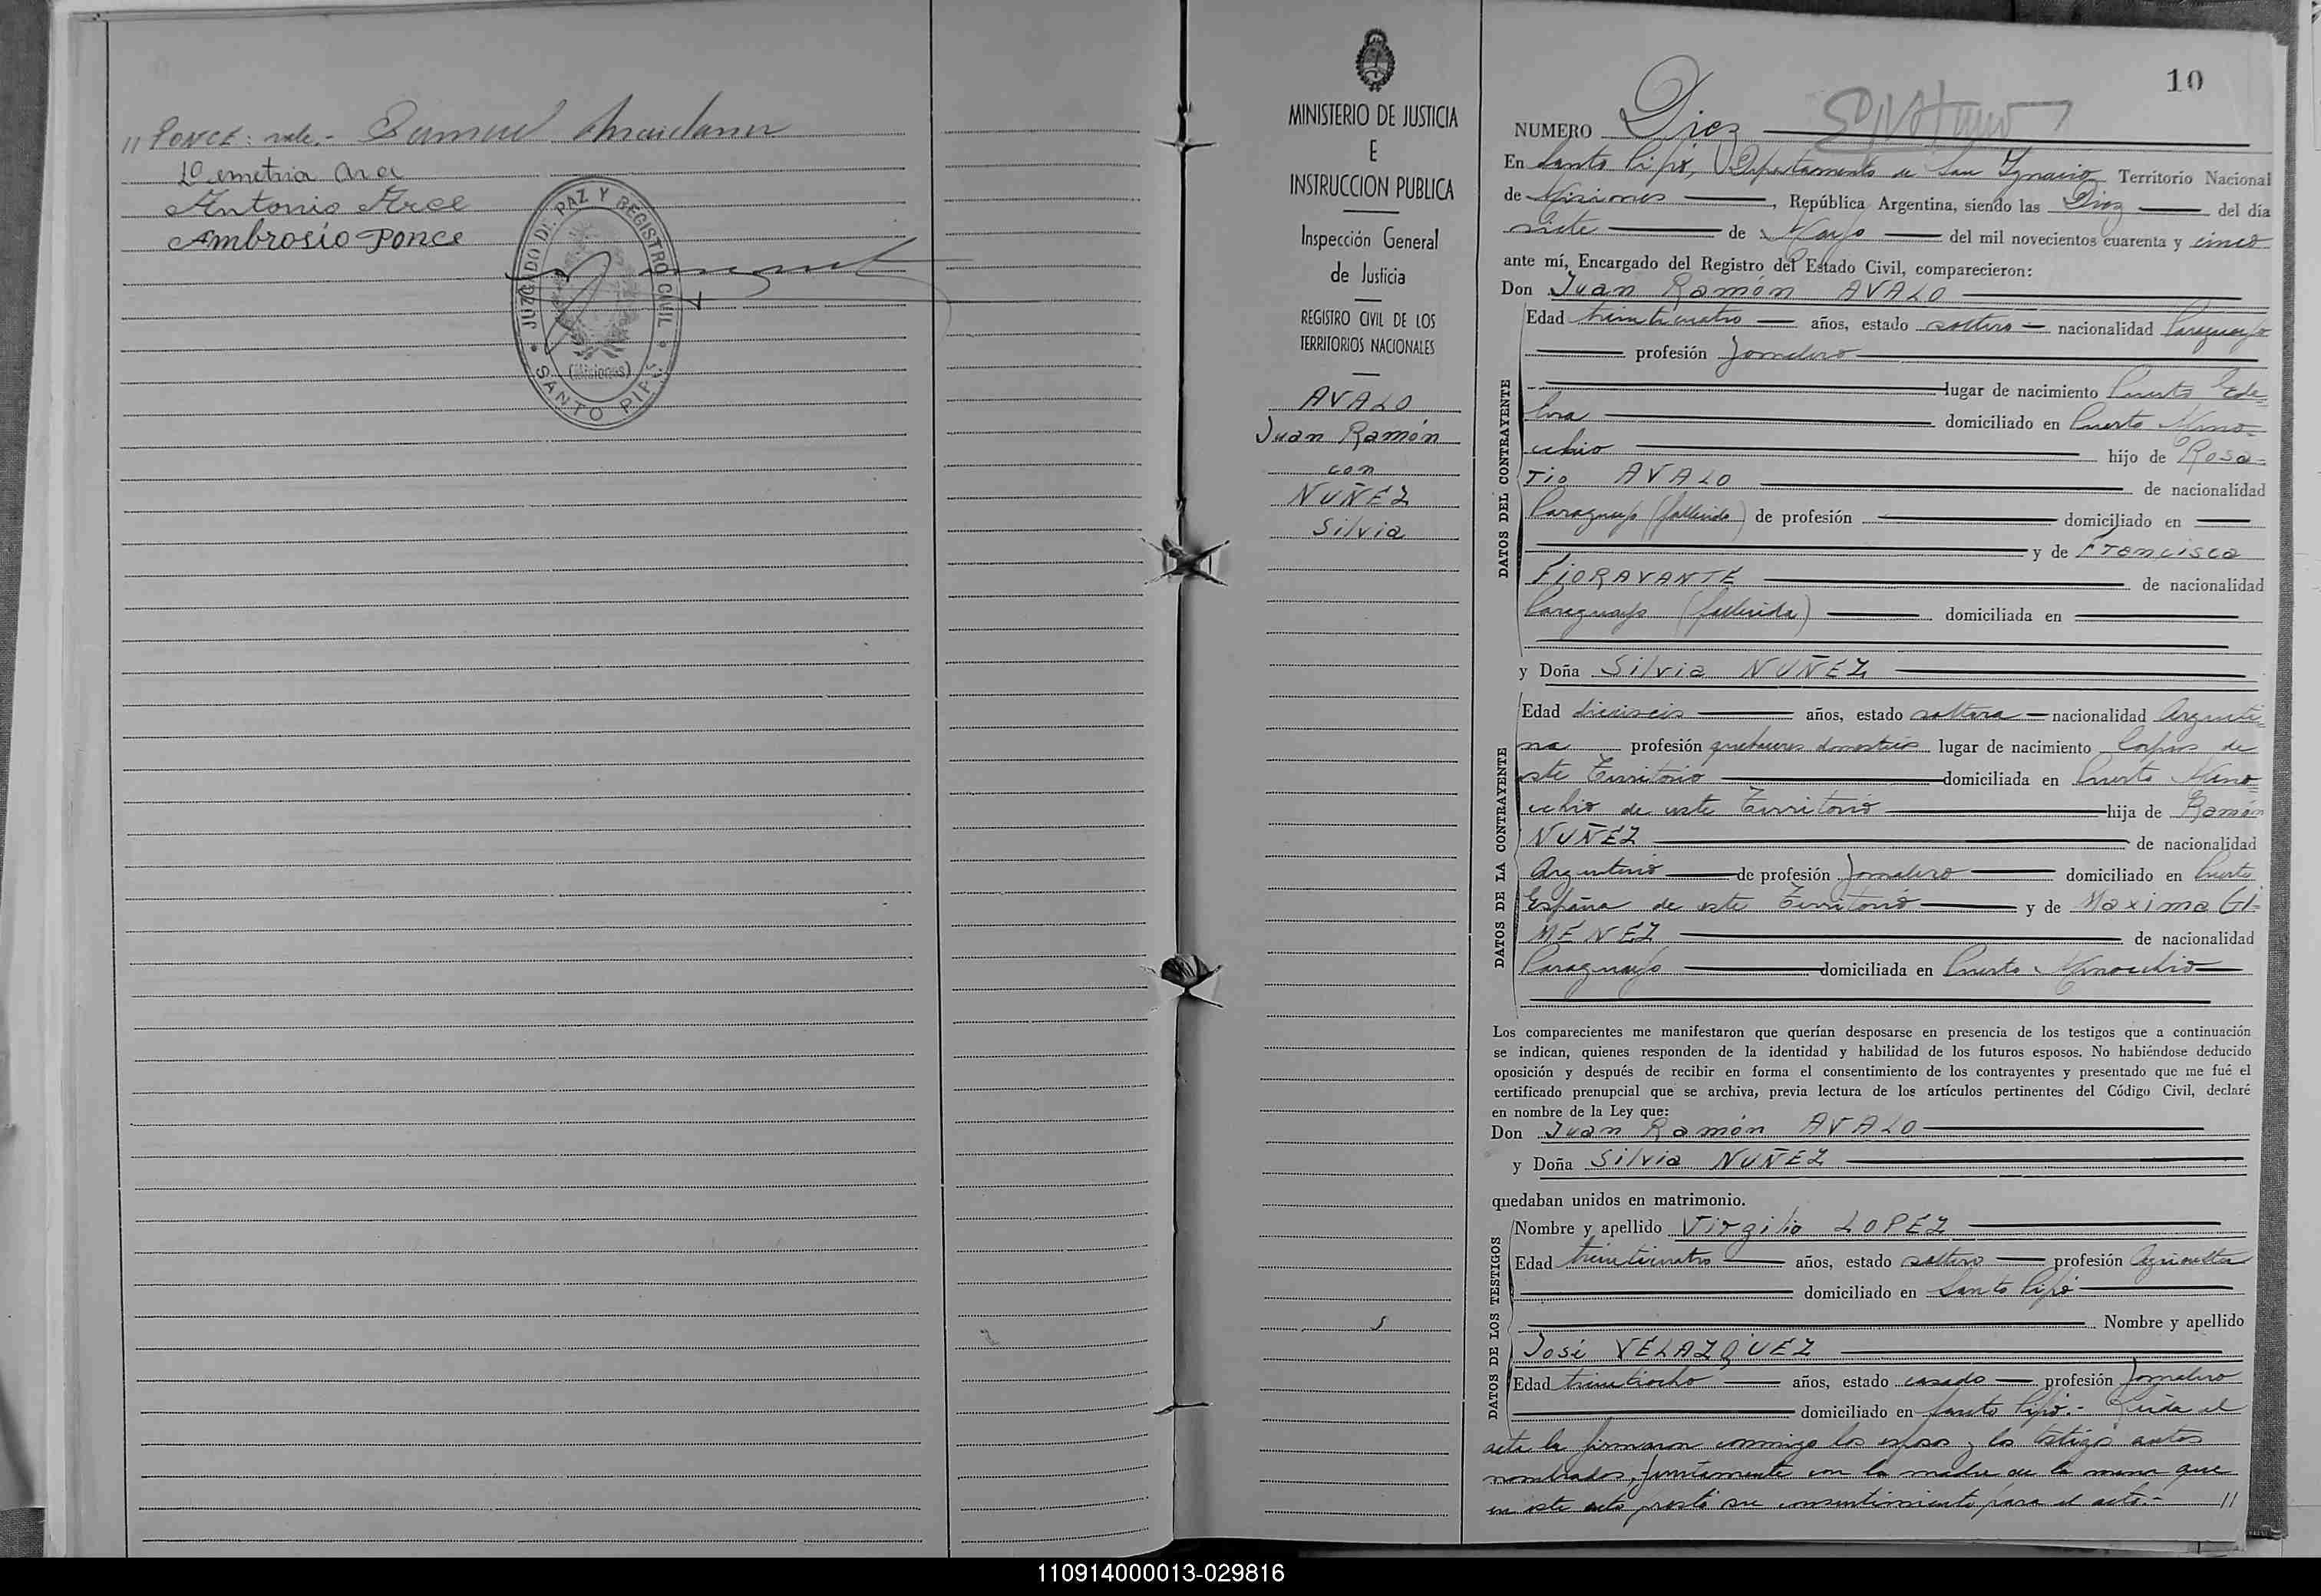 // PONCE: vale.- Samuel Maidana
Demetria Arce
Antonio Arce
Ambrosio Ponce
JUZGADO DE PAZ Y REGISTRO CIVIL
(Misiones)
SANTO PIPÓ
MINISTERIO DE JUSTICIA
E
INSTRUCCION PUBLICA
Inspección General
de Justicia
REGISTRO CIVIL DE LOS
TERRITORIOS NACIONALES
AVALO
Juan Ramón
con
NUÑEZ
Silvia
10
NUMERO Diez
En Santo Pipó, Departamento de San Ignacio Territorio Nacional
de Misiones, República Argentina, siendo las Diez del día
siete de Mayo del mil novecientos cuarenta y cinco
ante mí, Encargado del Registro del Estado Civil, comparecieron:
Don Juan Ramón AVALO
DATOS DEL CONTRAYENTE
Edad treinticuatro años, estado soltero nacionalidad Paraguayo
profesión Jornalero
lugar de nacimiento Puerto Ede=
lira domiciliado en Puerto Mino=
cchio hijo de Rosa=
rio AVALO de nacionalidad
Paraguayo (fallecido) de profesión domiciliado en
y de Francisca
FIORAVANTE de nacionalidad
Paraguayo (fallecida) domiciliada en
y Doña Silvia NUÑEZ
DATOS DE LA CONTRAYENTE
Edad dieciseis años, estado soltera nacionalidad Argenti=
na profesión quehaceres domesticos lugar de nacimiento Corpus de
este Territorio domiciliada en Puerto Mino=
cchio de este Territorio hija de Ramón
NUÑEZ de nacionalidad
Argentino de profesión Jornalero domiciliado en Puerto
España de este Territorio y de Maxima GI=
MENEZ de nacionalidad
Paraguayo domiciliada en Puerto Minocchio
Los comparecientes me manifestaron que querían desposarse en presencia de los testigos que a continuación
se indican, quienes responden de la identidad y habilidad de los futuros esposos. No habiéndose deducido
oposición y después de recibir en forma el consentimiento de los contrayentes y presentado que me fué el
certificado prenupcial que se archiva, previa lectura de los artículos pertinentes del Código Civil, declaré
en nombre de la Ley que:
Don Juan Ramón AVALO
y Doña Silvia NUÑEZ
quedaban unidos en matrimonio.
DATOS DE LOS TESTIGOS
Nombre y apellido Virgilio LOPEZ
Edad treinticuatro años, estado soltero profesión Agricultor
domiciliado en Santo Pipó
Nombre y apellido
José VELAZQUEZ
Edad treintiocho años, estado casado profesión Jornalero
domiciliado en Santo Pipó.- Leída el
acta la firmaron conmigo los esposos y los testigos antes
nombrados, juntamente con la madre de la menor que
en este acto prestó su consentimiento para el acto.- //
110914000013-029816